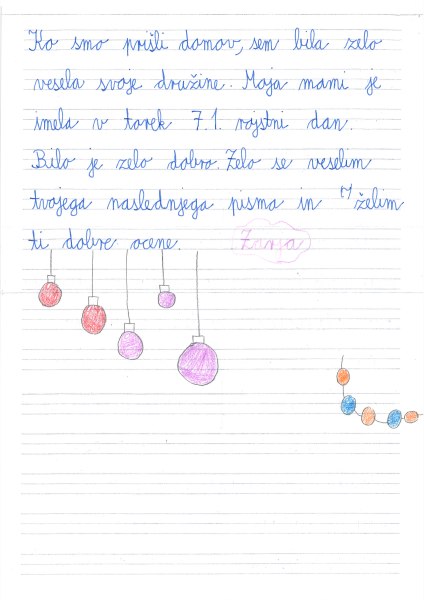 Ko smo prišli domov, sem bila zelo
vesela svoje družine. Moja mami je
imela v torek 7.1. rojstni dan.
Bilo je zelo dobro. Zelo se veselim
tvojega naslednjega pisma in želim
ti dobre ocene. Zarja